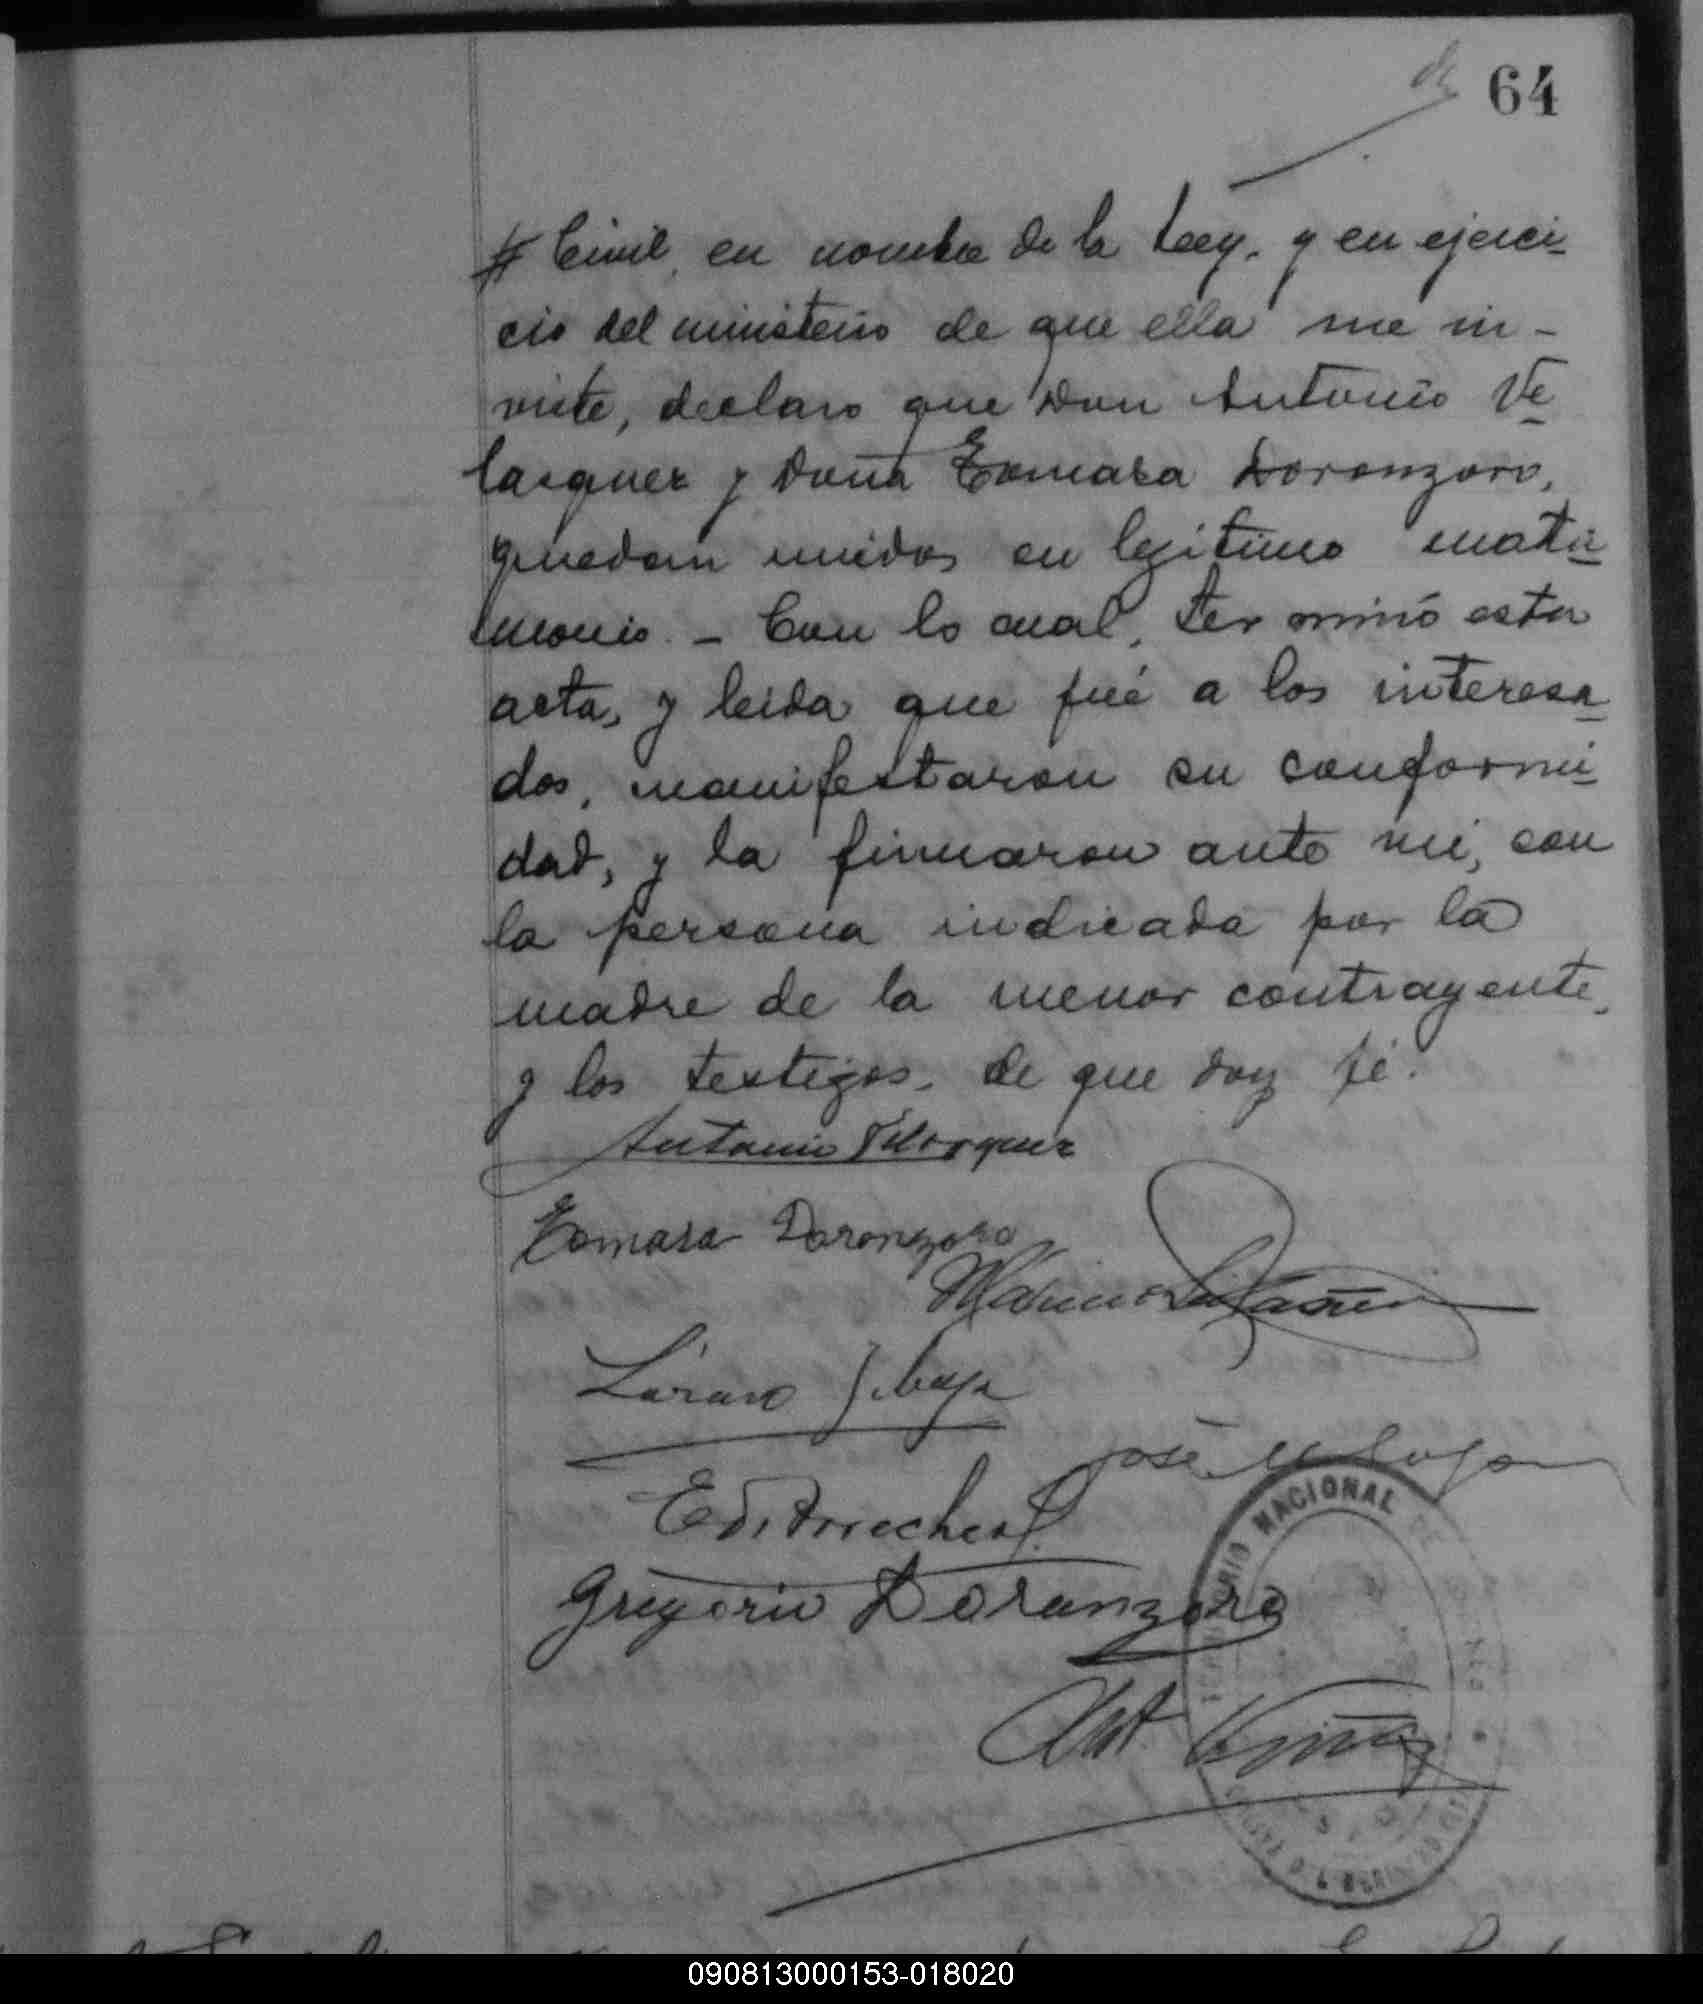 64
# Civil, en nombre de la Ley, y en ejerci-
cio del ministerio de que ella me in-
viste, declaro que Don Antonio Ve-
lasquez y Doña Tomasa Doronzoro,
quedan unidos en legitimo matri-
monio. - Con lo cual, terminó esta
acta, y leida que fué a los interesa-
dos, manifestaron su conformi-
dad, y la firmaron ante mi, con
la persona indicada por la
madre de la menor contrayente,
y los testigos, de que doy fé.
Antonio Velasquez
Tomasa Doronzoro
Marino
Lázaro
José M
Ed. Arrechea
Gregorio Doronzoro
NACIONAL DE
090813000153-018020